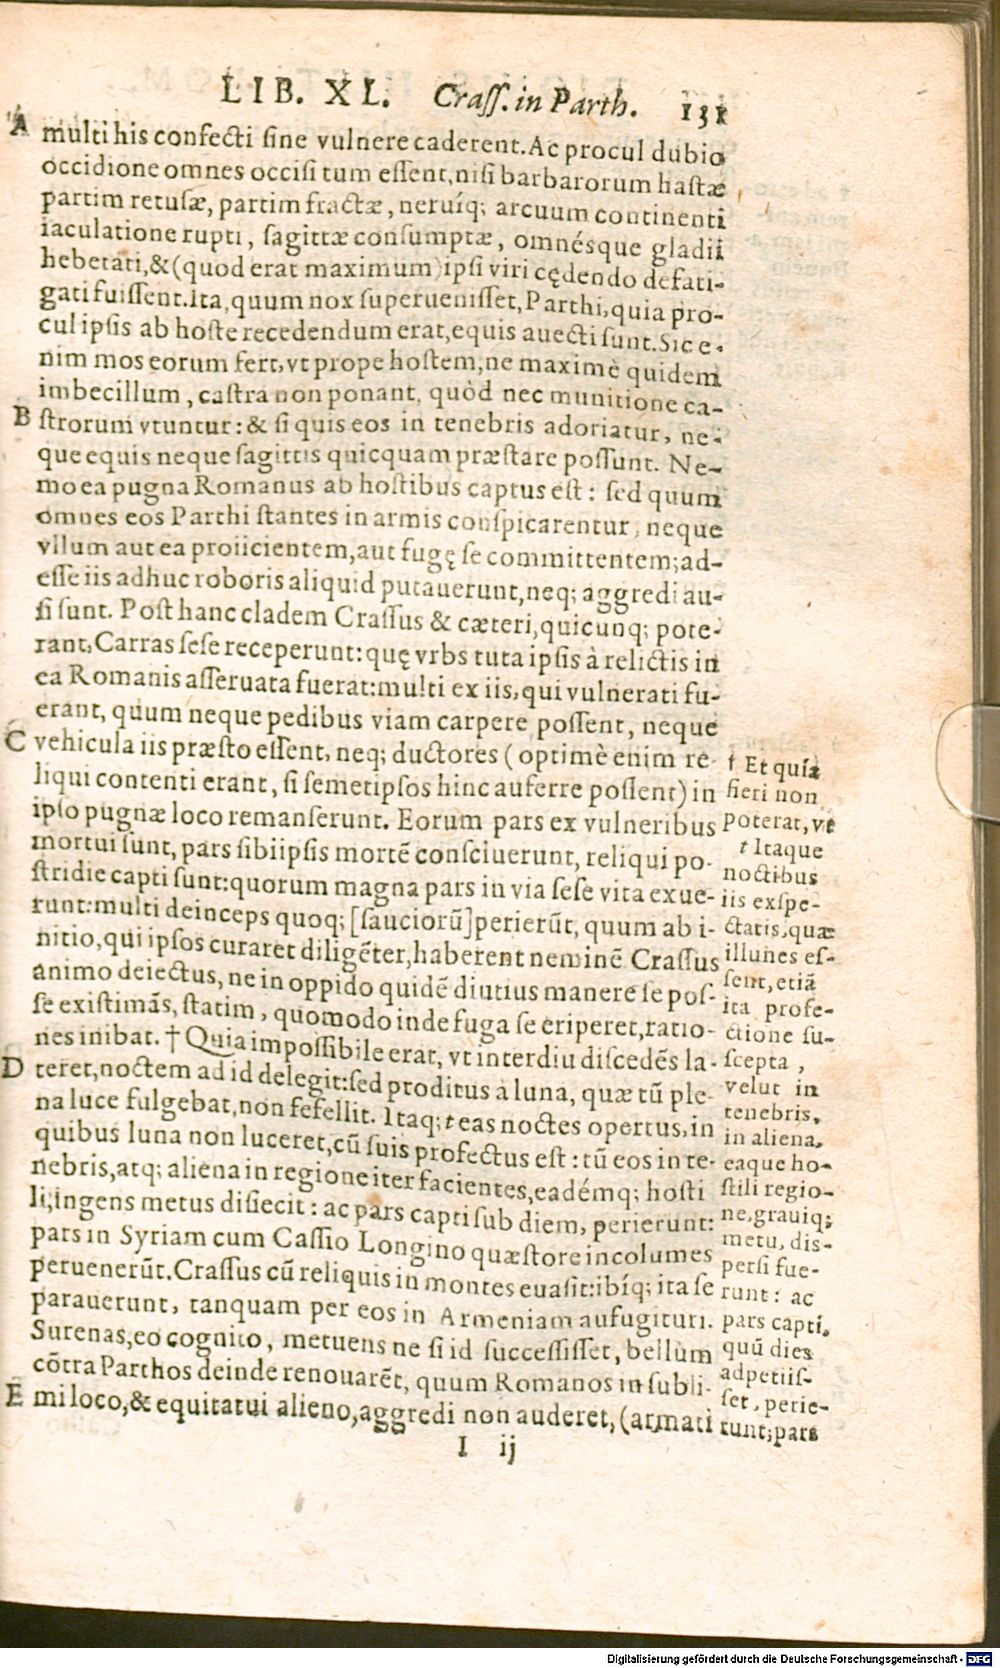 LIB. XL. Crass. in Parth. 131
A multi his confecti sine vulnere caderent. Ac procul dubio
occidione omnes occisi tum essent, nisi barbarorum hastæ
partim retusæ, partim fractæ, neruíq; arcuum continenti
iaculatione rupti, sagittæ consumptæ, omnésque gladii
hebetati, & (quod erat maximum) ipsi viri cędendo defati-
gati fuissent. Ita, quum nox superuenisset, Parthi, quia pro-
cul ipsis ab hoste recedendum erat, equis auecti sunt. Sic e-
nim mos eorum fert, vt prope hostem, ne maximè quidem
imbecillum, castra non ponant, quòd nec munitione ca-
B strorum vtuntur: & si quis eos in tenebris adoriatur, ne-
que equis neque sagittis quicquam præstare possunt. Ne-
mo ea pugna Romanus ab hostibus captus est: sed quum
omnes eos Parthi stantes in armis conspicarentur, neque
vllum aut ea proiicientem, aut fugę se committentem; ad-
esse iis adhuc roboris aliquid putauerunt, neq; aggredi au-
si sunt. Post hanc cladem Crassus & cæteri, quicunq; pote-
rant, Carras sese receperunt: quę vrbs tuta ipsis à relictis in
ea Romanis asseruata fuerat: multi ex iis, qui vulnerati fu-
erant, quum neque pedibus viam carpere possent, neque
C vehicula iis præsto essent, neq; ductores (optimè enim re-
liqui contenti erant, si semetipsos hinc auferre possent) in
ipso pugnæ loco remanserunt. Eorum pars ex vulneribus
mortui sunt, pars sibiipsis mortē consciuerunt, reliqui po-
stridie capti sunt: quorum magna pars in via sese vita exue-
runt: multi deinceps quoq; [sauciorū] perierūt, quum ab i-
nitio, qui ipsos curaret diligēter, haberent neminē Crassus
animo deiectus, ne in oppido quidē diutius manere se pos-
se existimās, statim, quomodo inde fuga se eriperet, ratio-
nes inibat. † Quia impossibile erat, vt interdiu discedēs la-
D teret, noctem ad id delegit: sed proditus à luna, quæ tū ple-
na luce fulgebat, non fefellit. Itaq; t eas noctes opertus, in
quibus luna non luceret, cū suis profectus est: tū eos in te-
nebris, atq; aliena in regione iter facientes, eadémq; hosti
li, ingens metus disiecit: ac pars capti sub diem, perierunt:
pars in Syriam cum Cassio Longino quæstore incolumes
peruenerūt. Crassus cū reliquis in montes euasit: ibíq; ita se
parauerunt, tanquam per eos in Armeniam aufugituri.
Surenas, eo cognito, metuens ne si id successisset, bellùm
cōtra Parthos deinde renouarēt, quum Romanos in subli-
E mi loco, & equitatui alieno, aggredi non auderet, (armati
I ij
† Et quia
fieri non
poterat, vt
t Itaque
noctibus
iis exspe-
ctatis, quæ
illunes es-
sent, etiā
ita profe-
ctione su-
scepta,
velut in
tenebris,
in aliena,
eaque ho-
stili regio-
ne, grauiq;
metu, dis-
persi fue-
runt: ac
pars capti,
quū dies
adpetiis-
set, perie-
runt; pars
Digitalisierung gefördert durch die Deutsche Forschungsgemeinschaft - DFG